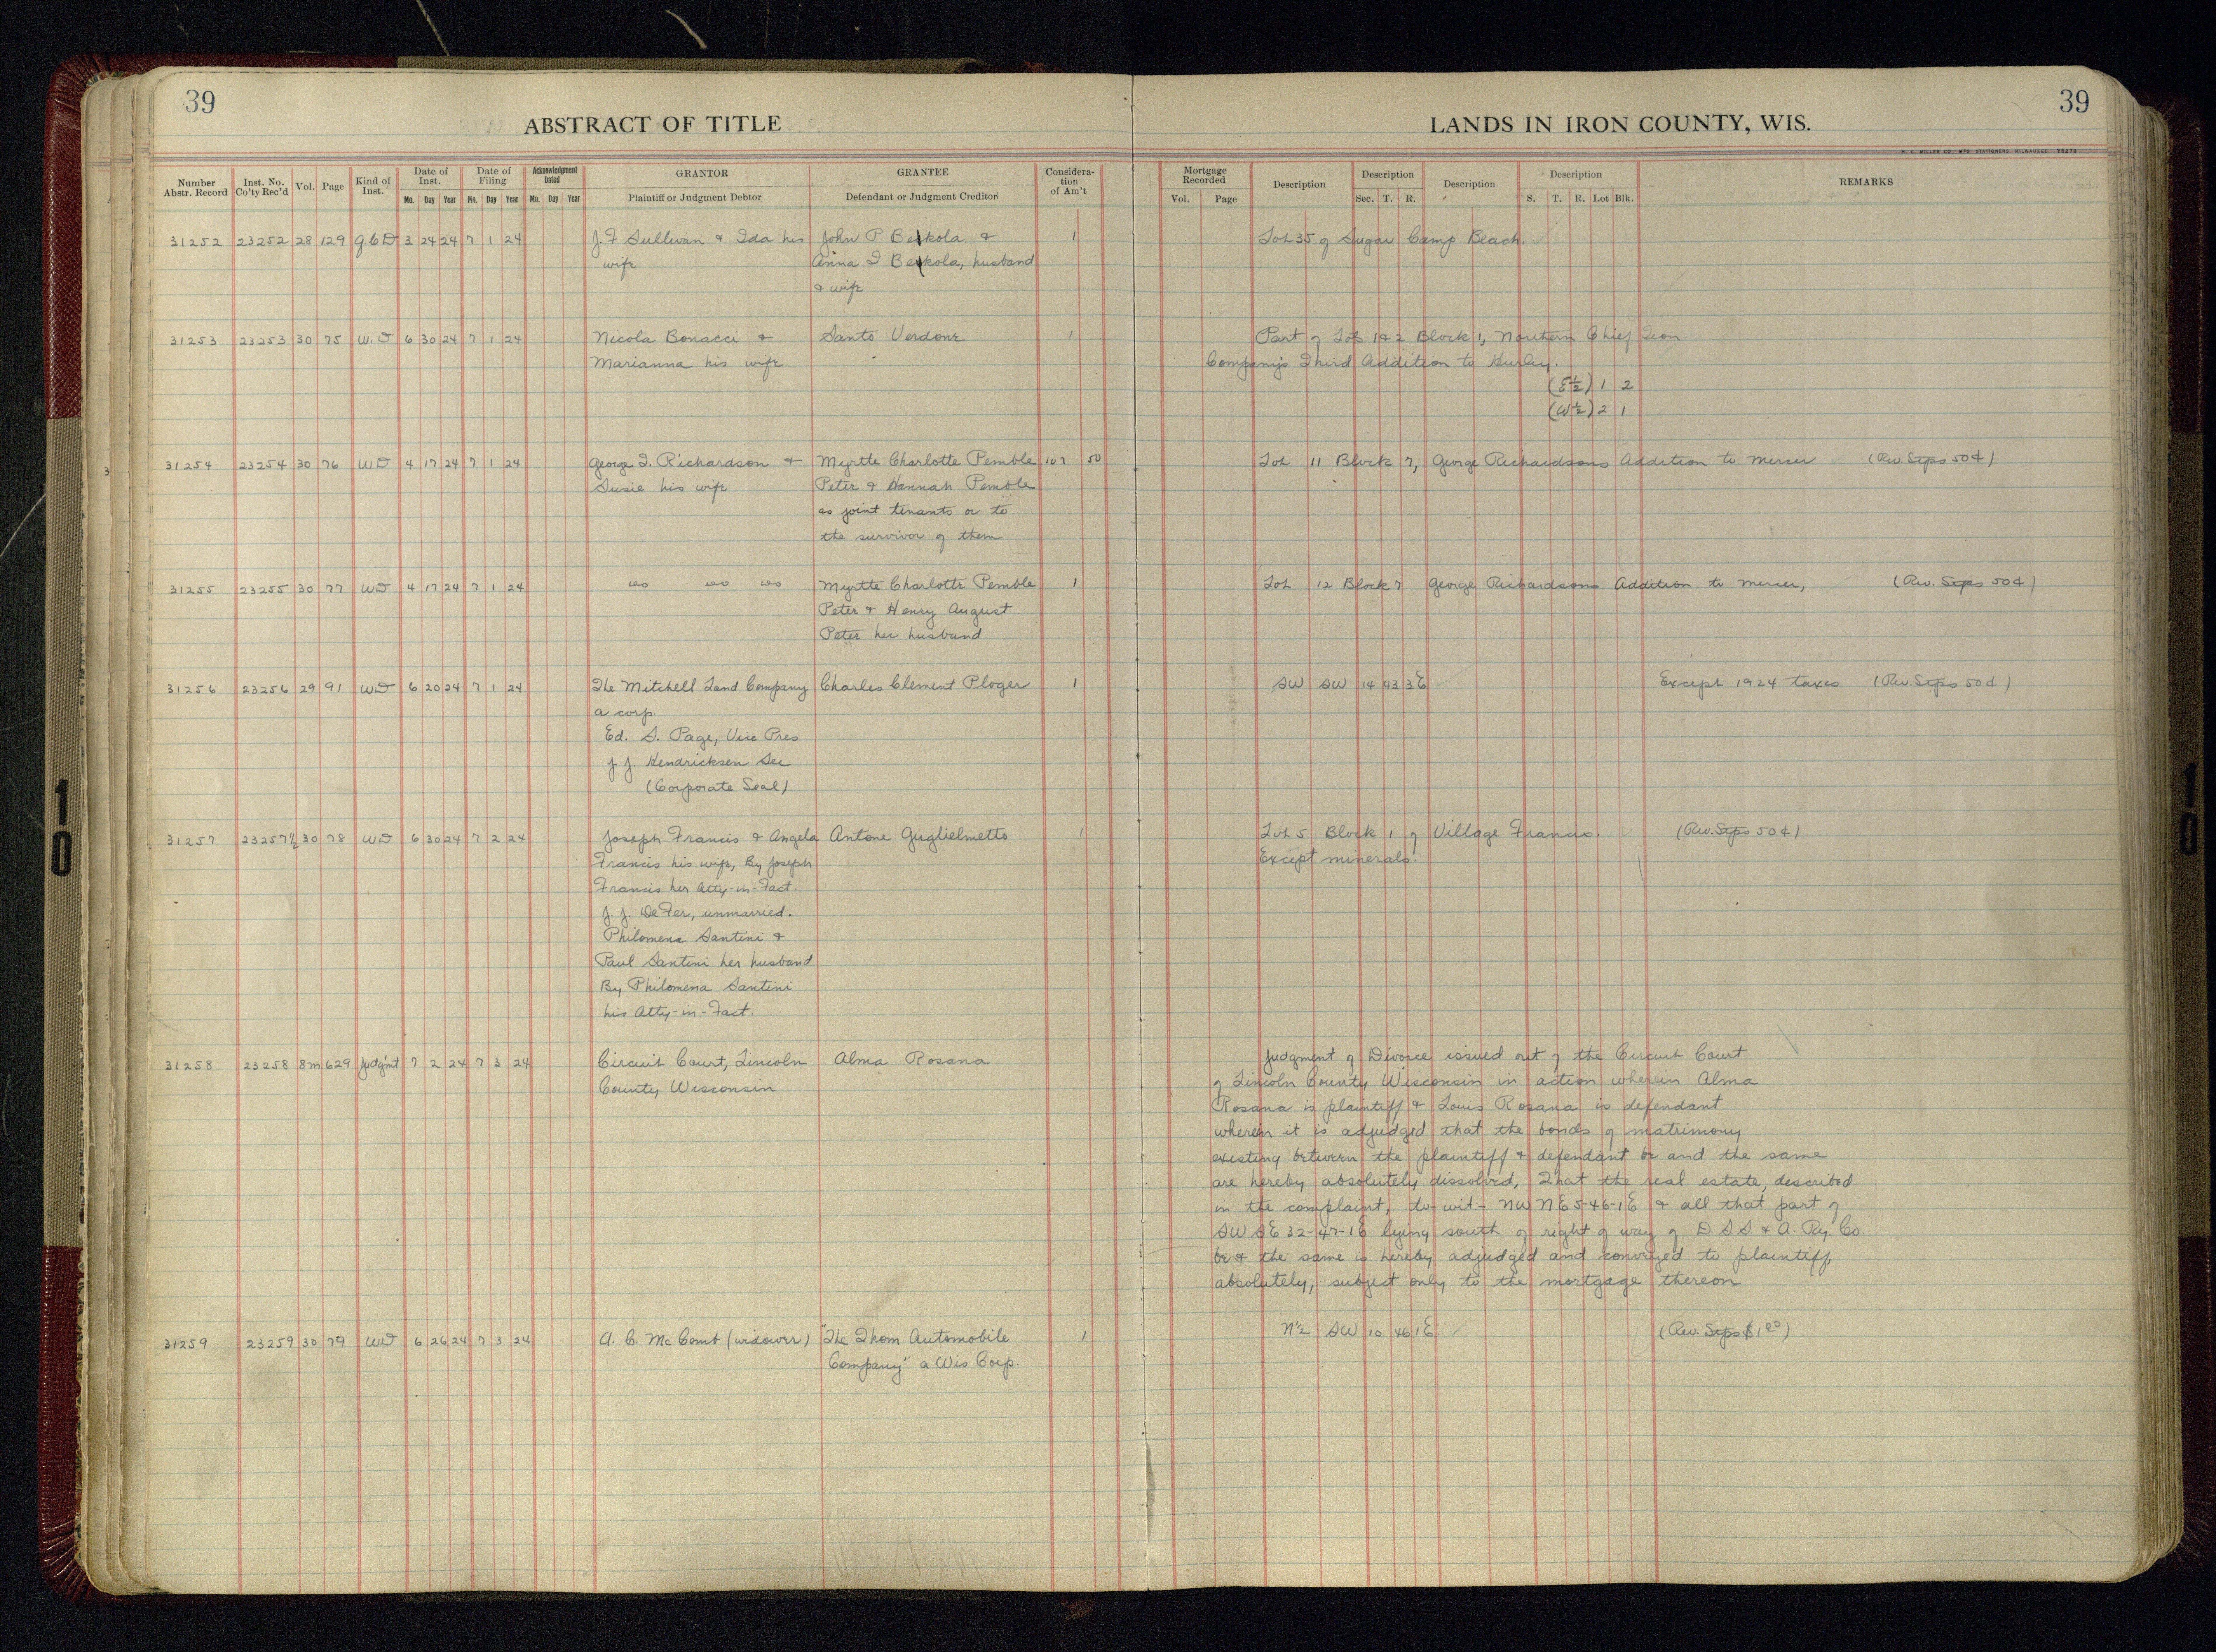 39
39
ABSTRACT OF TITLE
LANDS IN IRON COUNTY, WIS.
Number Abstr. Record
Inst. No. Co'ty Rec'd
Vol.
Page
Kind of Inst.
Date of Inst.
Mo. Day Year
Date of Filing
Mo. Day Year
Acknowledgment Dated
Mo. Day Year
GRANTOR
Plaintiff or Judgment Debtor
GRANTEE
Defendant or Judgment Creditor
Considera-
tion
of Am't
Mortgage Recorded
Vol. Page
Description
Description
Sec. T. R.
Description
Description
S. T. R. Lot Blk.
REMARKS
31252 23252 28 129 q.C.D 3 24 24 7 1 24 J. F Sullivan & Ida his John P Bekkola & 1 Lot 35 of Sugar Camp Beach.
wife Anna I Bekkola, husband
& wife
31253 23253 30 75 W.D 6 30 24 7 1 24 Nicola Bonacci & Santo Verdone 1 Part of Lots 1&2 Block 1, Northern Chief Iron
Marianna his wife Company's Third Addition to Hurley.
(E½) 1 2
(W½) 2 1
3
31254 23254 30 76 WD 4 17 24 7 1 24 George I. Richardson & Myrtle Charlotte Pemble 107 50 Lot 11 Block 7, George Richardsons Addition to Mercer (Rev. Stps 50¢)
Susie his wife Peter & Hannah Pemble
as joint tenants or to
the survivor of them
31255 23255 30 77 WD 4 17 24 7 1 24 do do do Myrtle Charlotte Pemble 1 Lot 12 Block 7 George Richardsons Addition to Mercer, (Rev. Stps 50¢)
Peter & Henry August
Peter her husband
31256 23256 29 91 WD 6 20 24 7 1 24 The Mitchell Land Company Charles Clement Ploger 1 SW SW 14 43 3E Except 1924 taxes (Rev. Stps 50¢)
a corp.
Ed. S. Page, Vice Pres
J J. Hendricksen Sec
(Corporate Seal)
31257 23257½ 30 78 WD 6 30 24 7 2 24 Joseph Francis & Angela Antone Guglielmetto 1 Lot 5 Block 1 of Village Francis. (Rev. Stps 50¢)
Francis his wife, By Joseph Except minerals.
Francis her Atty-in-Fact.
J. J. DeFer, unmarried.
Philomena Santini &
Paul Santini her husband
By Philomena Santini
his Atty-in-Fact.
31258 23258 8m 629 Judg'mt 7 2 24 7 3 24 Circuit Court, Lincoln Alma Rosana Judgment of Divorce issued out of the Circuit Court
County Wisconsin of Lincoln County Wisconsin in action wherein Alma
Rosana is plaintiff & Louis Rosana is defendant
wherein it is adjudged that the bonds of matrimony
existing between the plaintiff & defendant be and the same
are hereby absolutely dissolved, That the real estate, described
in the complaint, to-wit:- NW NE 5-46-1E & all that part of
SW SE 32-47-1E lying south of right of way of D S S & A. Ry. Co.
be & the same is hereby adjudged and conveyed to plaintiff,
absolutely, subject only to the mortgage thereon
31259 23259 30 79 WD 6 26 24 7 3 24 A. C. McComb (widower) "The Thom Automobile 1 N½ SW 10 46 1E (Rev. Stps $1.00)
Company" a Wis Corp.